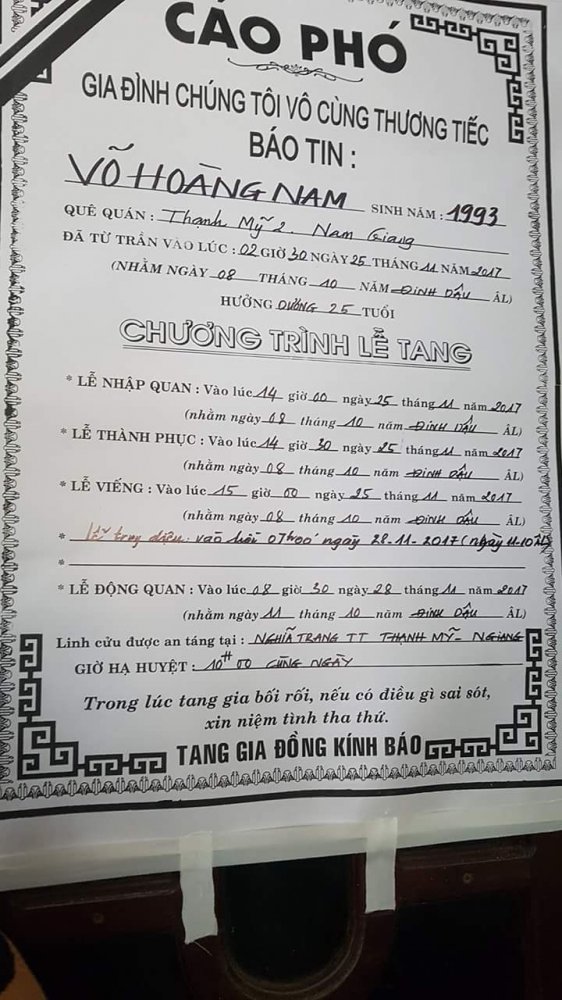 CÁO PHÓ
GIA ĐÌNH CHÚNG TÔI VÔ CÙNG THƯƠNG TIẾC
BÁO TIN :
VÕ HOÀNG NAM SINH NĂM : 1993
QUÊ QUÁN : Thạnh Mỹ 2. Nam Giang
ĐÃ TỪ TRẦN VÀO LÚC : 02 GIỜ 30 NGÀY 25 THÁNG 11 NĂM 2017
(NHẰM NGÀY 08 THÁNG 10 NĂM ĐINH DẬU ÂL)
HƯỞNG DƯƠNG 25 TUỔI
CHƯƠNG TRÌNH LỄ TANG
* LỄ NHẬP QUAN : Vào lúc 14 giờ 00 ngày 25 tháng 11 năm 2017
(nhằm ngày 08 tháng 10 năm ĐINH DẬU ÂL)
* LỄ THÀNH PHỤC : Vào lúc 14 giờ 30 ngày 25 tháng 11 năm 2017
(nhằm ngày 08 tháng 10 năm ĐINH DẬU ÂL)
* LỄ VIẾNG : Vào lúc 15 giờ 00 ngày 25 tháng 11 năm 2017
(nhằm ngày 08 tháng 10 năm ĐINH DẬU ÂL)
* Lễ truy điệu: vào hồi 07h00' ngày 28-11-2017 (ngày 11-10 ÂL)
*
* LỄ ĐỘNG QUAN : Vào lúc 08 giờ 30 ngày 28 tháng 11 năm 2017
(nhằm ngày 11 tháng 10 năm ĐINH DẬU ÂL)
Linh cửu được an táng tại : NGHĨA TRANG TT THẠNH MỸ - NGIANG
GIỜ HẠ HUYỆT : 10H00 CÙNG NGÀY
Trong lúc tang gia bối rối, nếu có điều gì sai sót,
xin niệm tình tha thứ.
TANG GIA ĐỒNG KÍNH BÁO